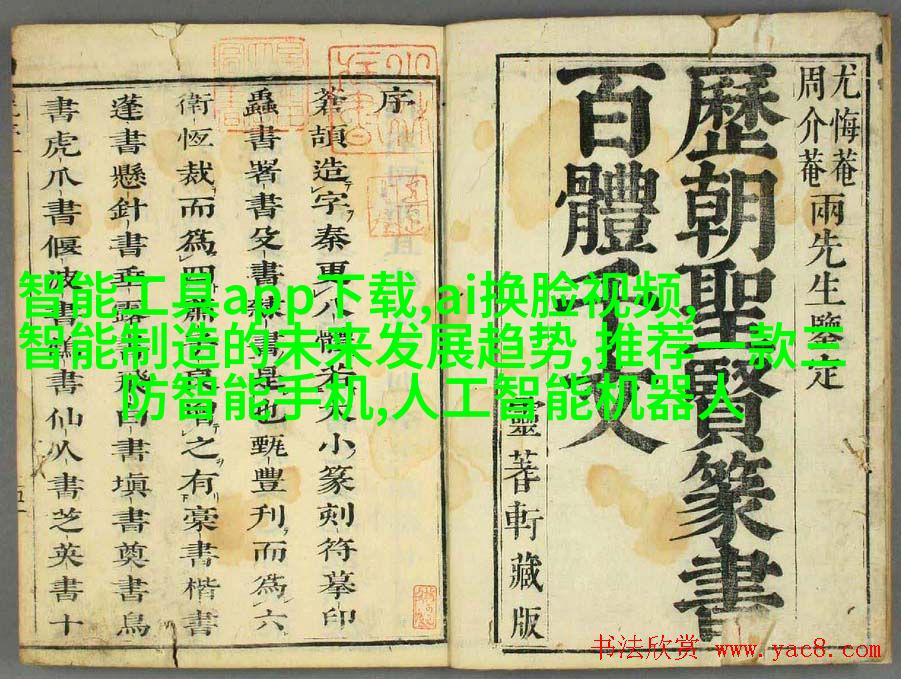 尤悔菴
周介菴
兩先生鑒定
歷朝聖賢篆書
百體千文
靈蓍軒藏版
序
蒼頡造字秦更八體若大小篆刻符摹印
蟲書署書殳書隸書是也甄豐刋而為六
衛恆裁而為四之有藁書楷書
蓬書懸針書垂露書飛白書塡書奠書鳥
書虎爪書偃波書鶴書仙人書芝英書十
智能工具app下载,ai换脸视频,
智能制造的未来发展趋势,推荐一款三
防智能手机,人工智能机器人
书法欣赏 www.yac8.com